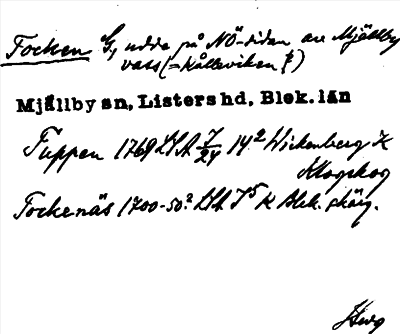 Tocken G, udde på NÖ-sidan av Mjällby
vass (= Kålleviken?)
Mjällby sn, Listers hd, Blek. län
Tuppen 1769 LSA 7/24 14² Wickenberg K
Tockenäs 1700-50? LSA J5 K Blek. skärg.